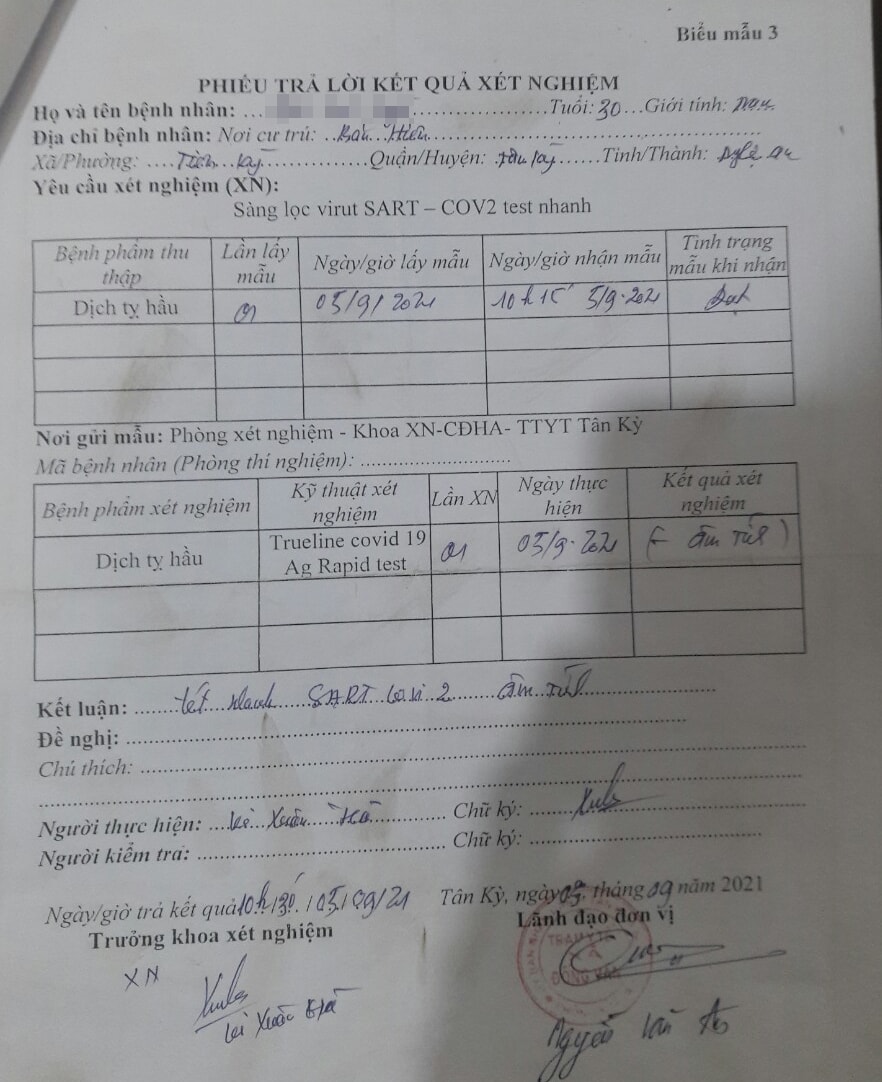 Biểu mẫu 3
PHIẾU TRẢ LỜI KẾT QUẢ XÉT NGHIỆM
Họ và tên bệnh nhân: Tuổi: 30 Giới tính: nam
Địa chỉ bệnh nhân: Nơi cư trú:
Xã/Phường: Kỳ Quận/Huyện: Tân Kỳ Tỉnh/Thành: Nghệ An
Yêu cầu xét nghiệm (XN):
Sàng lọc virut SART – COV2 test nhanh
Bệnh phẩm thu thập Lần lấy mẫu Ngày/giờ lấy mẫu Ngày/giờ nhận mẫu Tình trạng mẫu khi nhận
Dịch tỵ hầu 01 05/9/2021 10h15 5/9.2021 Đạt
Nơi gửi mẫu: Phòng xét nghiệm - Khoa XN-CĐHA- TTYT Tân Kỳ
Mã bệnh nhân (Phòng thí nghiệm):
Bệnh phẩm xét nghiệm Kỹ thuật xét nghiệm Lần XN Ngày thực hiện Kết quả xét nghiệm
Dịch tỵ hầu Trueline covid 19 Ag Rapid test 01 05/9.2021 (- âm tính)
Kết luận: tét nhanh SART Covi 2 âm tính
Đề nghị:
Chú thích:
Người thực hiện: Xuân Hà Chữ ký:
Người kiểm tra: Chữ ký:
Ngày/giờ trả kết quả 10h30 / 05/09/21 Tân Kỳ, ngày 05 tháng 09 năm 2021
Trưởng khoa xét nghiệm Lãnh đạo đơn vị
TRẠM Y TẾ
XN
ĐỒNG VĂN
Xuân Hà
Nguyễn Văn